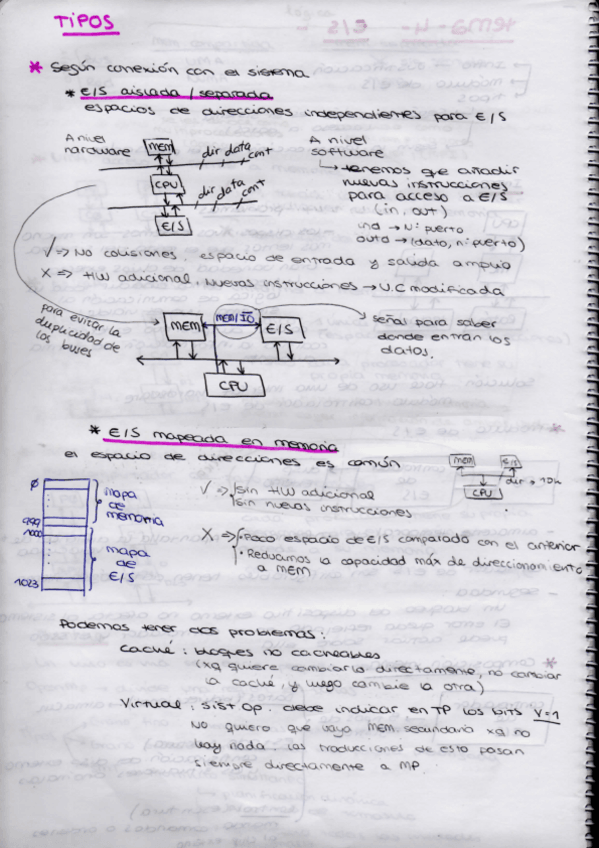 TIPOS
* Según conexión con el sistema
* E/S aislada / separada
espacios de direcciones independientes para E/S
A nivel
hardware
MEM
dir data cont
CPU
dir data cont
E/S
A nivel
software
↳ tenemos que añadir
nuevas instrucciones
para acceso a E/S
(in, out)
ind → Nº puerto
outd → (dato, nº puerto)
✓ ⇒ No colisiones, espacio de entrada y salida amplio
X ⇒ HW adicional, Nuevas instrucciones → U.C modificada
para evitar la
duplicidad de
los buses
MEM
MEM/IO
E/S
CPU
señal para saber
donde entran los
datos.
* E/S mapeada en memoria
el espacio de direcciones es común
MEM
E/S
CPU
dir
0
999
1000
1023
mapa
de
memoria
mapa
de
E/S
✓ ⇒ sin HW adicional
sin nuevas instrucciones
X ⇒ · Poco espacio de E/S comparado con el anterior
· Reduamos la capacidad máx de direccionamiento
a MEM
Podemos tener dos problemas:
caché: bloques no cacheables
(xq quiere cambiarlo directamente, no cambiar
la caché, y luego cambie la otra)
Virtual: sist op. debe indicar en TP los bits V=1
No quiero que vaya MEM secundaria xq no
hay nada. las traducciones de esto pasan
siempre directamente a MP.